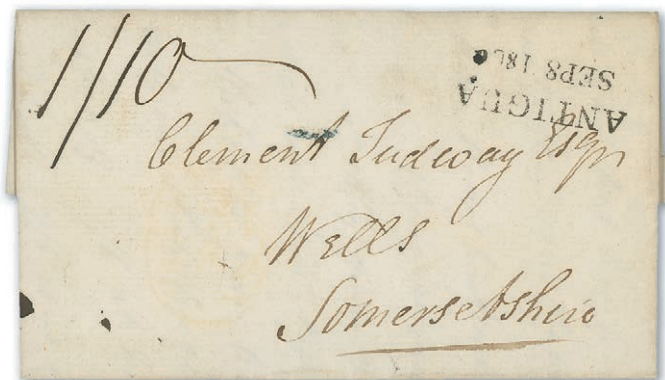 1/10
ANTIGUA
SEP 8 180
Clement Tudway Esqr
Wells
Somersetshire